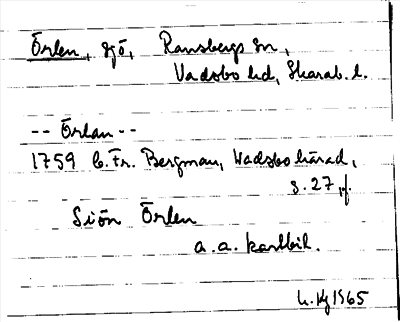 Örlen, sjö, Ransbergs sn,
Vadsbo hd, Skarab. l.
-- Örlan --
1759 C. Fr. Bergman, Wadsbo härad,
s. 27, f.
Siön Örlen
a. a. kartbil.
1965